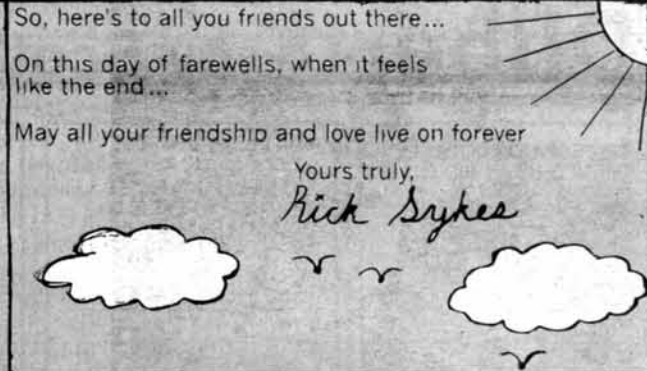 So, here's to all you friends out there...
On this day of farewells, when it feels
like the end...
May all your friendship and love live on forever
Yours truly,
Rick Sykes